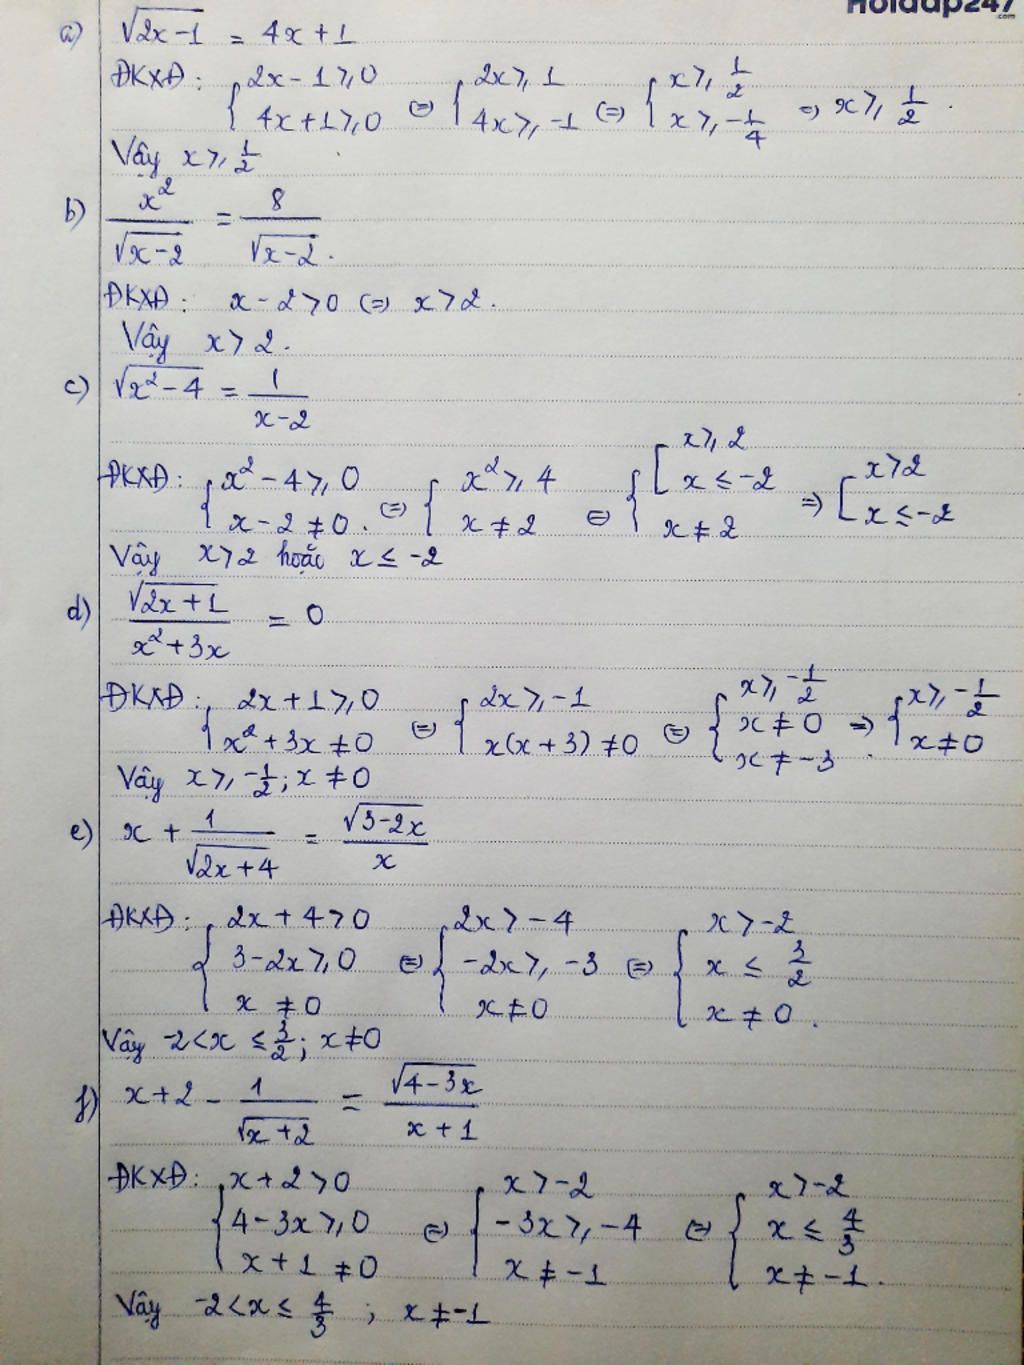 Hoidap247
.com
a) √(2x-1) = 4x+1
ĐKXĐ: { 2x-1 ⩾ 0 ; 4x+1 ⩾ 0 (=) { 2x ⩾ 1 ; 4x ⩾ -1 (=) { x ⩾ 1/2 ; x ⩾ -1/4 => x ⩾ 1/2.
Vậy x ⩾ 1/2
b) x²/√(x-2) = 8/√(x-2).
ĐKXĐ: x-2 > 0 (=) x > 2.
Vậy x > 2.
c) √(x²-4) = 1/(x-2)
ĐKXĐ: { x²-4 ⩾ 0 ; x-2 ≠ 0. (=) { x² ⩾ 4 ; x ≠ 2 (=) { [ x ⩾ 2 ; x ≤ -2 ; x ≠ 2 => [ x > 2 ; x ≤ -2
Vậy x > 2 hoặc x ≤ -2
d) √(2x+1)/(x²+3x) = 0
ĐKXĐ: { 2x+1 ⩾ 0 ; x²+3x ≠ 0 (=) { 2x ⩾ -1 ; x(x+3) ≠ 0 (=) { x ⩾ -1/2 ; x ≠ 0 ; x ≠ -3 => { x ⩾ -1/2 ; x ≠ 0
Vậy x ⩾ -1/2 ; x ≠ 0
e) x + 1/√(2x+4) = √(3-2x)/x
ĐKXĐ: { 2x+4 > 0 ; 3-2x ⩾ 0 ; x ≠ 0 (=) { 2x > -4 ; -2x ⩾ -3 ; x ≠ 0 (=) { x > -2 ; x ≤ 3/2 ; x ≠ 0.
Vậy -2 < x ≤ 3/2 ; x ≠ 0
f) x+2 - 1/√(x+2) = √(4-3x)/(x+1)
ĐKXĐ: { x+2 > 0 ; 4-3x ⩾ 0 ; x+1 ≠ 0 (=) { x > -2 ; -3x ⩾ -4 ; x ≠ -1 (=) { x > -2 ; x ≤ 4/3 ; x ≠ -1.
Vậy -2 < x ≤ 4/3 ; x ≠ -1